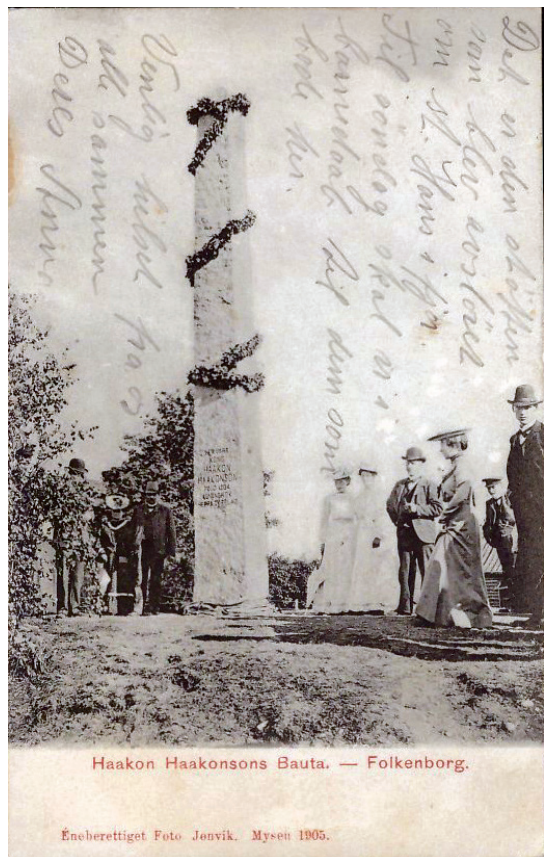 Det er den stötten
som blev avslöret
om st. Hans i
Til söndag skal vi i
barnedaab til dem som
bode her
Venlig hilset fra os
alle sammen
Deres Anna
KONG
HAAKON
HAAKONSON
FØD 1204
Haakon Haakonsons Bauta. — Folkenborg.
Éneberettiget Foto Jenvik. Mysen 1905.